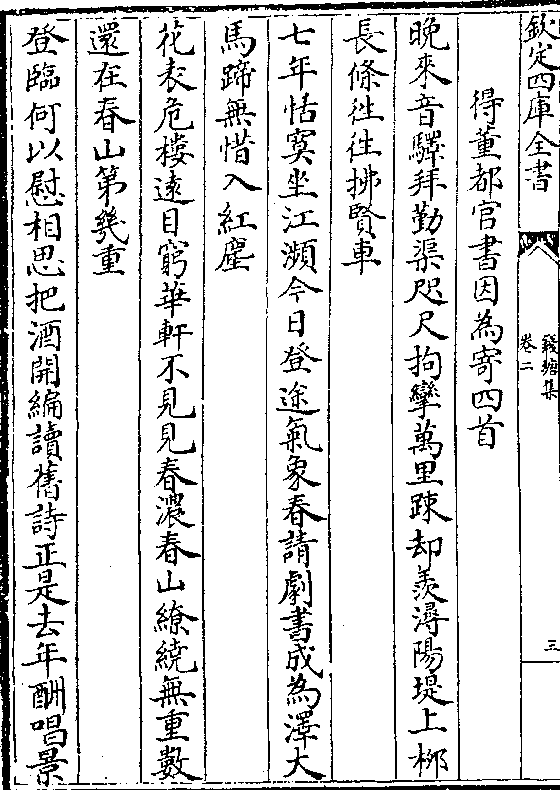 欽定四庫全書
錢塘集
卷二
三
得董都官書因為寄四首
晚來音驛拜勤渠咫尺拘攣萬里踈却羨潯陽堤上桞
長條徃徃拂賢車
七年恬寞坐江瀕今日登途氣象春請劇書成為澤大
馬蹄無惜入紅塵
花表危樓遠目窮華軒不見見春濃春山繚繞無重數
還在春山第幾重
登臨何以慰相思把酒開編讀舊詩正是去年酬唱景